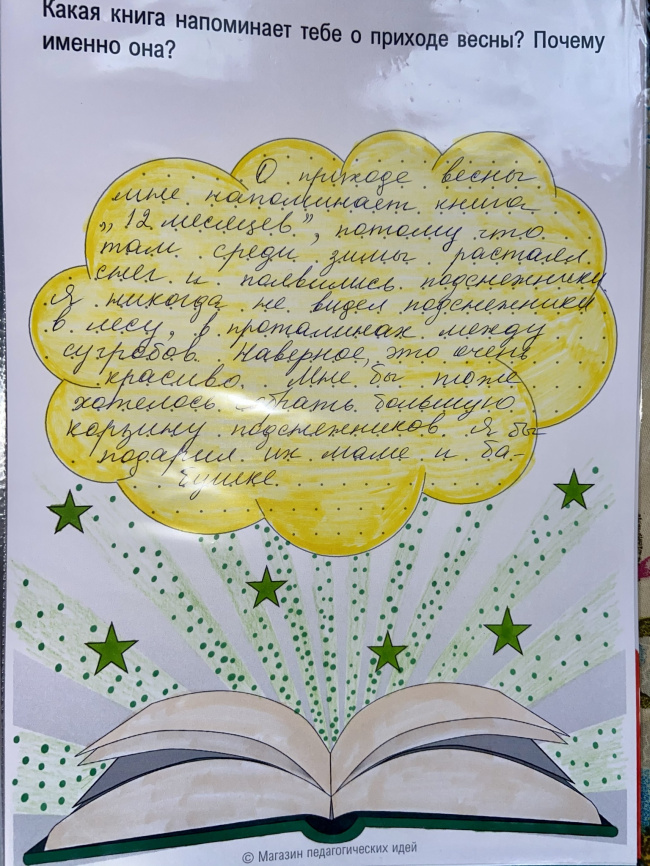 Какая книга напоминает тебе о приходе весны? Почему
именно она?
О приходе весны
мне напоминает книга
„12 месяцев", потому что
там среди зимы растаял
снег и появились подснежники
Я никогда не видел подснежники
в лесу, в проталинах между
сугробов. Наверное, это очень
красиво. Мне бы тоже
хотелось собрать большую
корзину подснежников. Я бы
подарил их маме и ба-
бушке
© Магазин педагогических идей